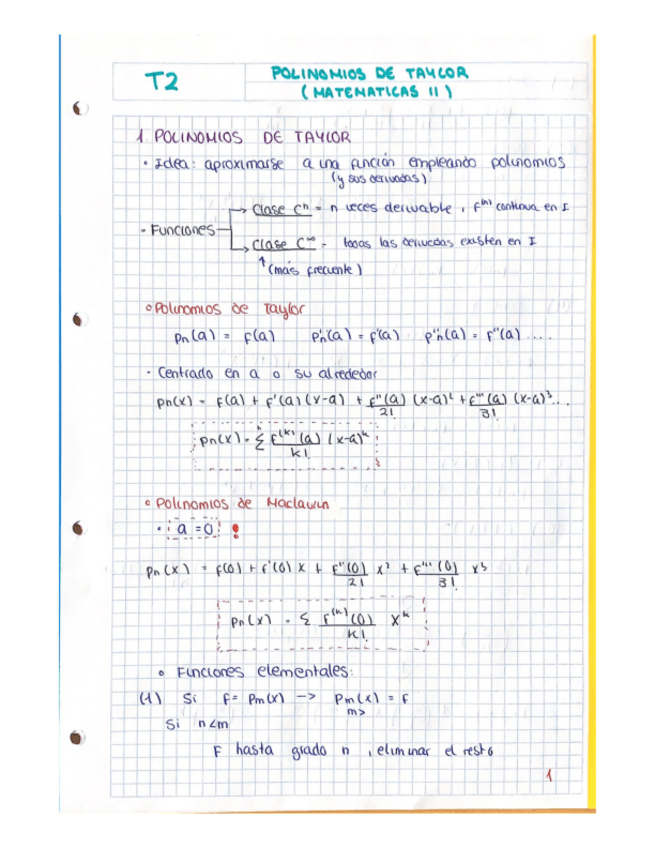 T2
POLINOMIOS DE TAYLOR
(MATEMATICAS II)
1. POLINOMIOS DE TAYLOR
· Idea: aproximarse a una función empleando polinomios
(y sus derivadas)
· Funciones
→ Clase Cⁿ = n veces derivable, f⁽ⁿ⁾ continua en I
→ Clase C∞ - todas las derivadas existen en I
↑ (más frecuente)
o Polinomios de Taylor
Pn(a) = f(a) P'n(a) = f'(a) P''n(a) = f''(a) ....
· Centrado en a o su alrededor
Pn(x) = f(a) + f'(a)(x-a) + f''(a)/2! (x-a)² + f'''(a)/3! (x-a)³...
Pn(x) = Σ f⁽ᵏ⁾(a)/k! (x-a)ᵏ
o Polinomios de Maclaurin
· a = 0 !
Pn(x) = f(0) + f'(0) x + f''(0)/2! x² + f'''(0)/3! x³
Pn(x) = Σ f⁽ᵏ⁾(0)/k! xᵏ
o Funciones elementales:
(1) Si f = Pm(x) -> Pm(x) = f
m>
Si n<m
F hasta grado n, eliminar el resto
1